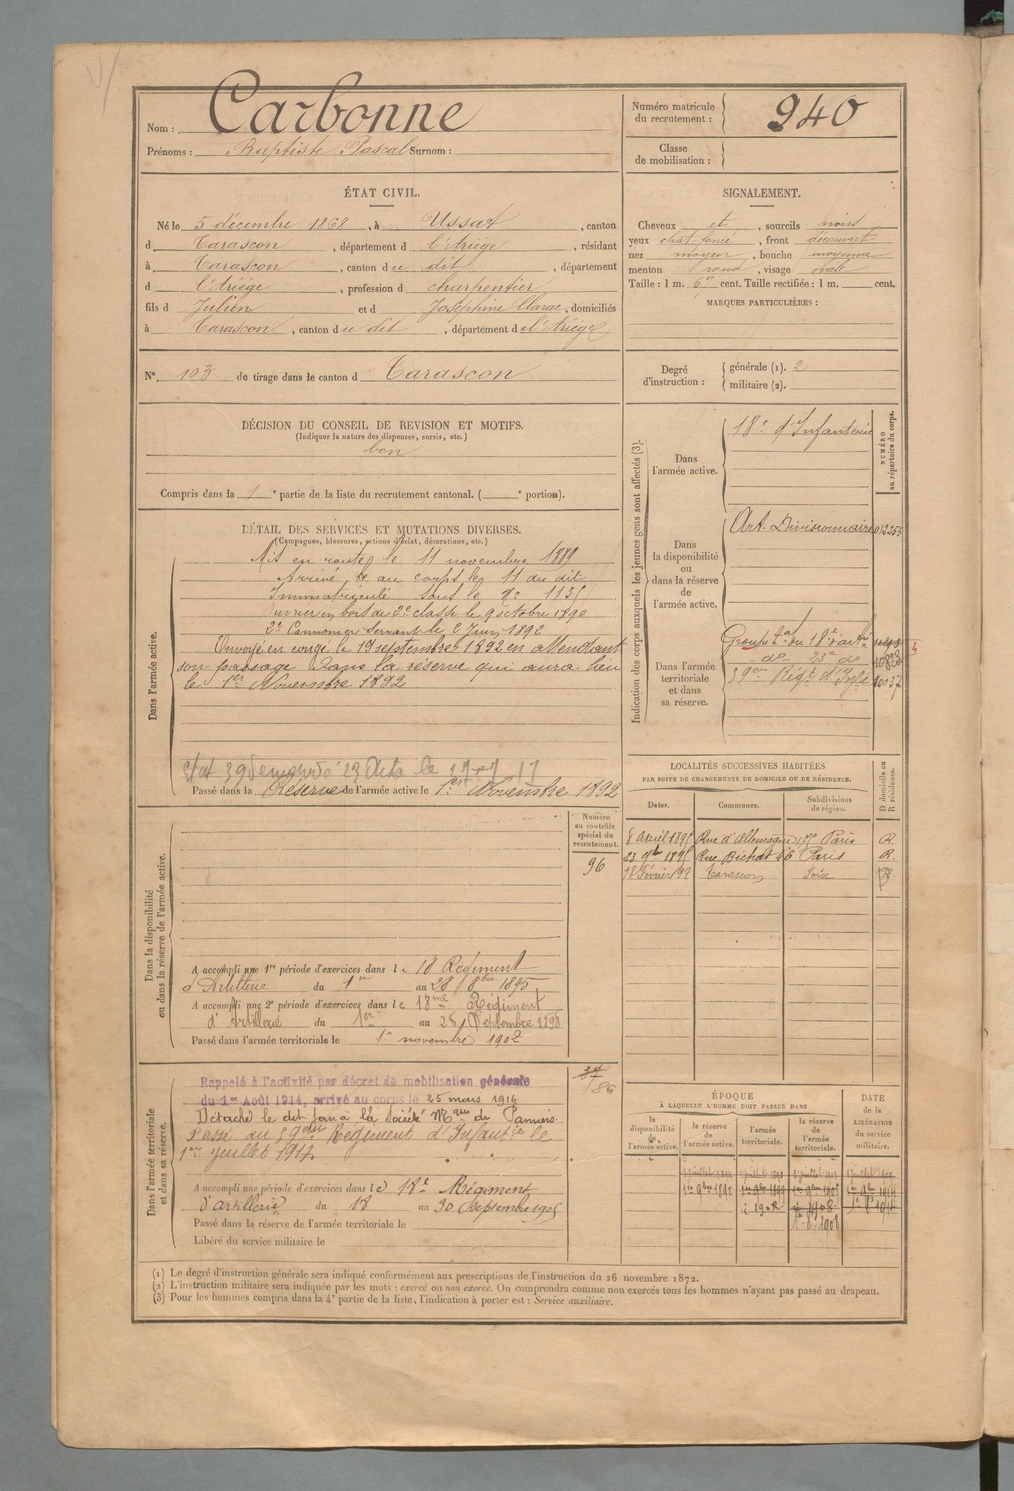 Nom : Carbonne
Prénoms : Baptiste Pascal Surnom :
Numéro matricule du recrutement : 940
Classe de mobilisation :
ÉTAT CIVIL.
Né le 5 décembre 1868, à Ussat, canton
d Tarascon, département d l'Ariège, résidant
à Tarascon, canton du dit, département
d l'Ariège, profession d charpentier
fils d Julien et d Joséphine Clarac, domiciliés
à Tarascon, canton du dit, département de l'Ariège
SIGNALEMENT.
Cheveux et, sourcils noirs
yeux chat. foncé, front découvert
nez moyen, bouche moyenne
menton rond, visage ovale
Taille : 1 m. cent. Taille rectifiée : 1 m. cent.
MARQUES PARTICULIÈRES :
N° 103 de tirage dans le canton d Tarascon
Degré d'instruction : générale (1). 2
militaire (2).
DÉCISION DU CONSEIL DE REVISION ET MOTIFS.
(Indiquer la nature des dispenses, sursis, etc.)
bon
Compris dans la 1e partie de la liste du recrutement cantonal. ( e portion).
DÉTAIL DES SERVICES ET MUTATIONS DIVERSES.
(Campagnes, blessures, actions d'éclat, décorations, etc.)
Dans l'armée active.
Mis en route le 11 novembre 1889
Arrivé au corps le 11 du dit
Immatriculé sous le N° 1135
Ouvrier en bois de 2e classe le 9 octobre 1890
2e Canonnier Servant le 2 Juin 1892
Envoyé en congé le 19 septembre 1892 en attendant
son passage dans la réserve qui aura lieu
le 1er Novembre 1892
Passé dans la Réserve de l'armée active le 1er Novembre 1892
Indication des corps auxquels les jeunes gens sont affectés (3).
NUMÉRO au répertoire du corps.
Dans l'armée active.
18e d'Infanterie
Dans la disponibilité ou dans la réserve de l'armée active.
Art. Divisionnaire 012355
Dans l'armée territoriale et dans sa réserve.
Groupe tal du 18e d'artie
- do - 23e do
59em Régt d'Infie
LOCALITÉS SUCCESSIVES HABITÉES
PAR SUITE DE CHANGEMENTS DE DOMICILE OU DE RÉSIDENCE.
D domicile ou R résidence.
Dates. Communes. Subdivisions de région.
8 avril 1895 Rue d'Allemagne Paris R.
23 9bre 1895 Rue Bichat 46 Paris R.
Tarascon Foix
Dans la disponibilité ou dans la réserve de l'armée active.
Numéro au contrôle spécial du recrutement.
96
A accompli une 1re période d'exercices dans le 18 Régiment
d'Artillerie du 1er au 28 8bre 1895
A accompli une 2e période d'exercices dans le 18me Régiment
d'Artillerie du 1er au 28 Septembre 1898
Passé dans l'armée territoriale le 1er novembre 1902
Dans l'armée territoriale et dans sa réserve.
Rappelé à l'activité par décret de mobilisation générale
du 1er Août 1914, arrivé au corps le 25 mars 1916
Détaché le dit jour à la Société Mque de Pamiers.
Passé au 59em Régiment d'Infantie le
1er juillet 1917.
A accompli une période d'exercices dans le 18e Régiment
d'artillerie du 18 au 30 Septembre 1905
Passé dans la réserve de l'armée territoriale le
Libéré du service militaire le
ÉPOQUE
À LAQUELLE L'HOMME DOIT PASSER DANS
la disponibilité de l'armée active. la réserve de l'armée active. l'armée territoriale. la réserve de l'armée territoriale.
DATE de la LIBÉRATION du service militaire.
(1) Le degré d'instruction générale sera indiqué conformément aux prescriptions de l'instruction du 26 novembre 1872.
(2) L'instruction militaire sera indiquée par les mots : exercé ou non exercé. On comprendra comme non exercés tous les hommes n'ayant pas passé au drapeau.
(3) Pour les hommes compris dans la 4e partie de la liste, l'indication à porter est : Service auxiliaire.